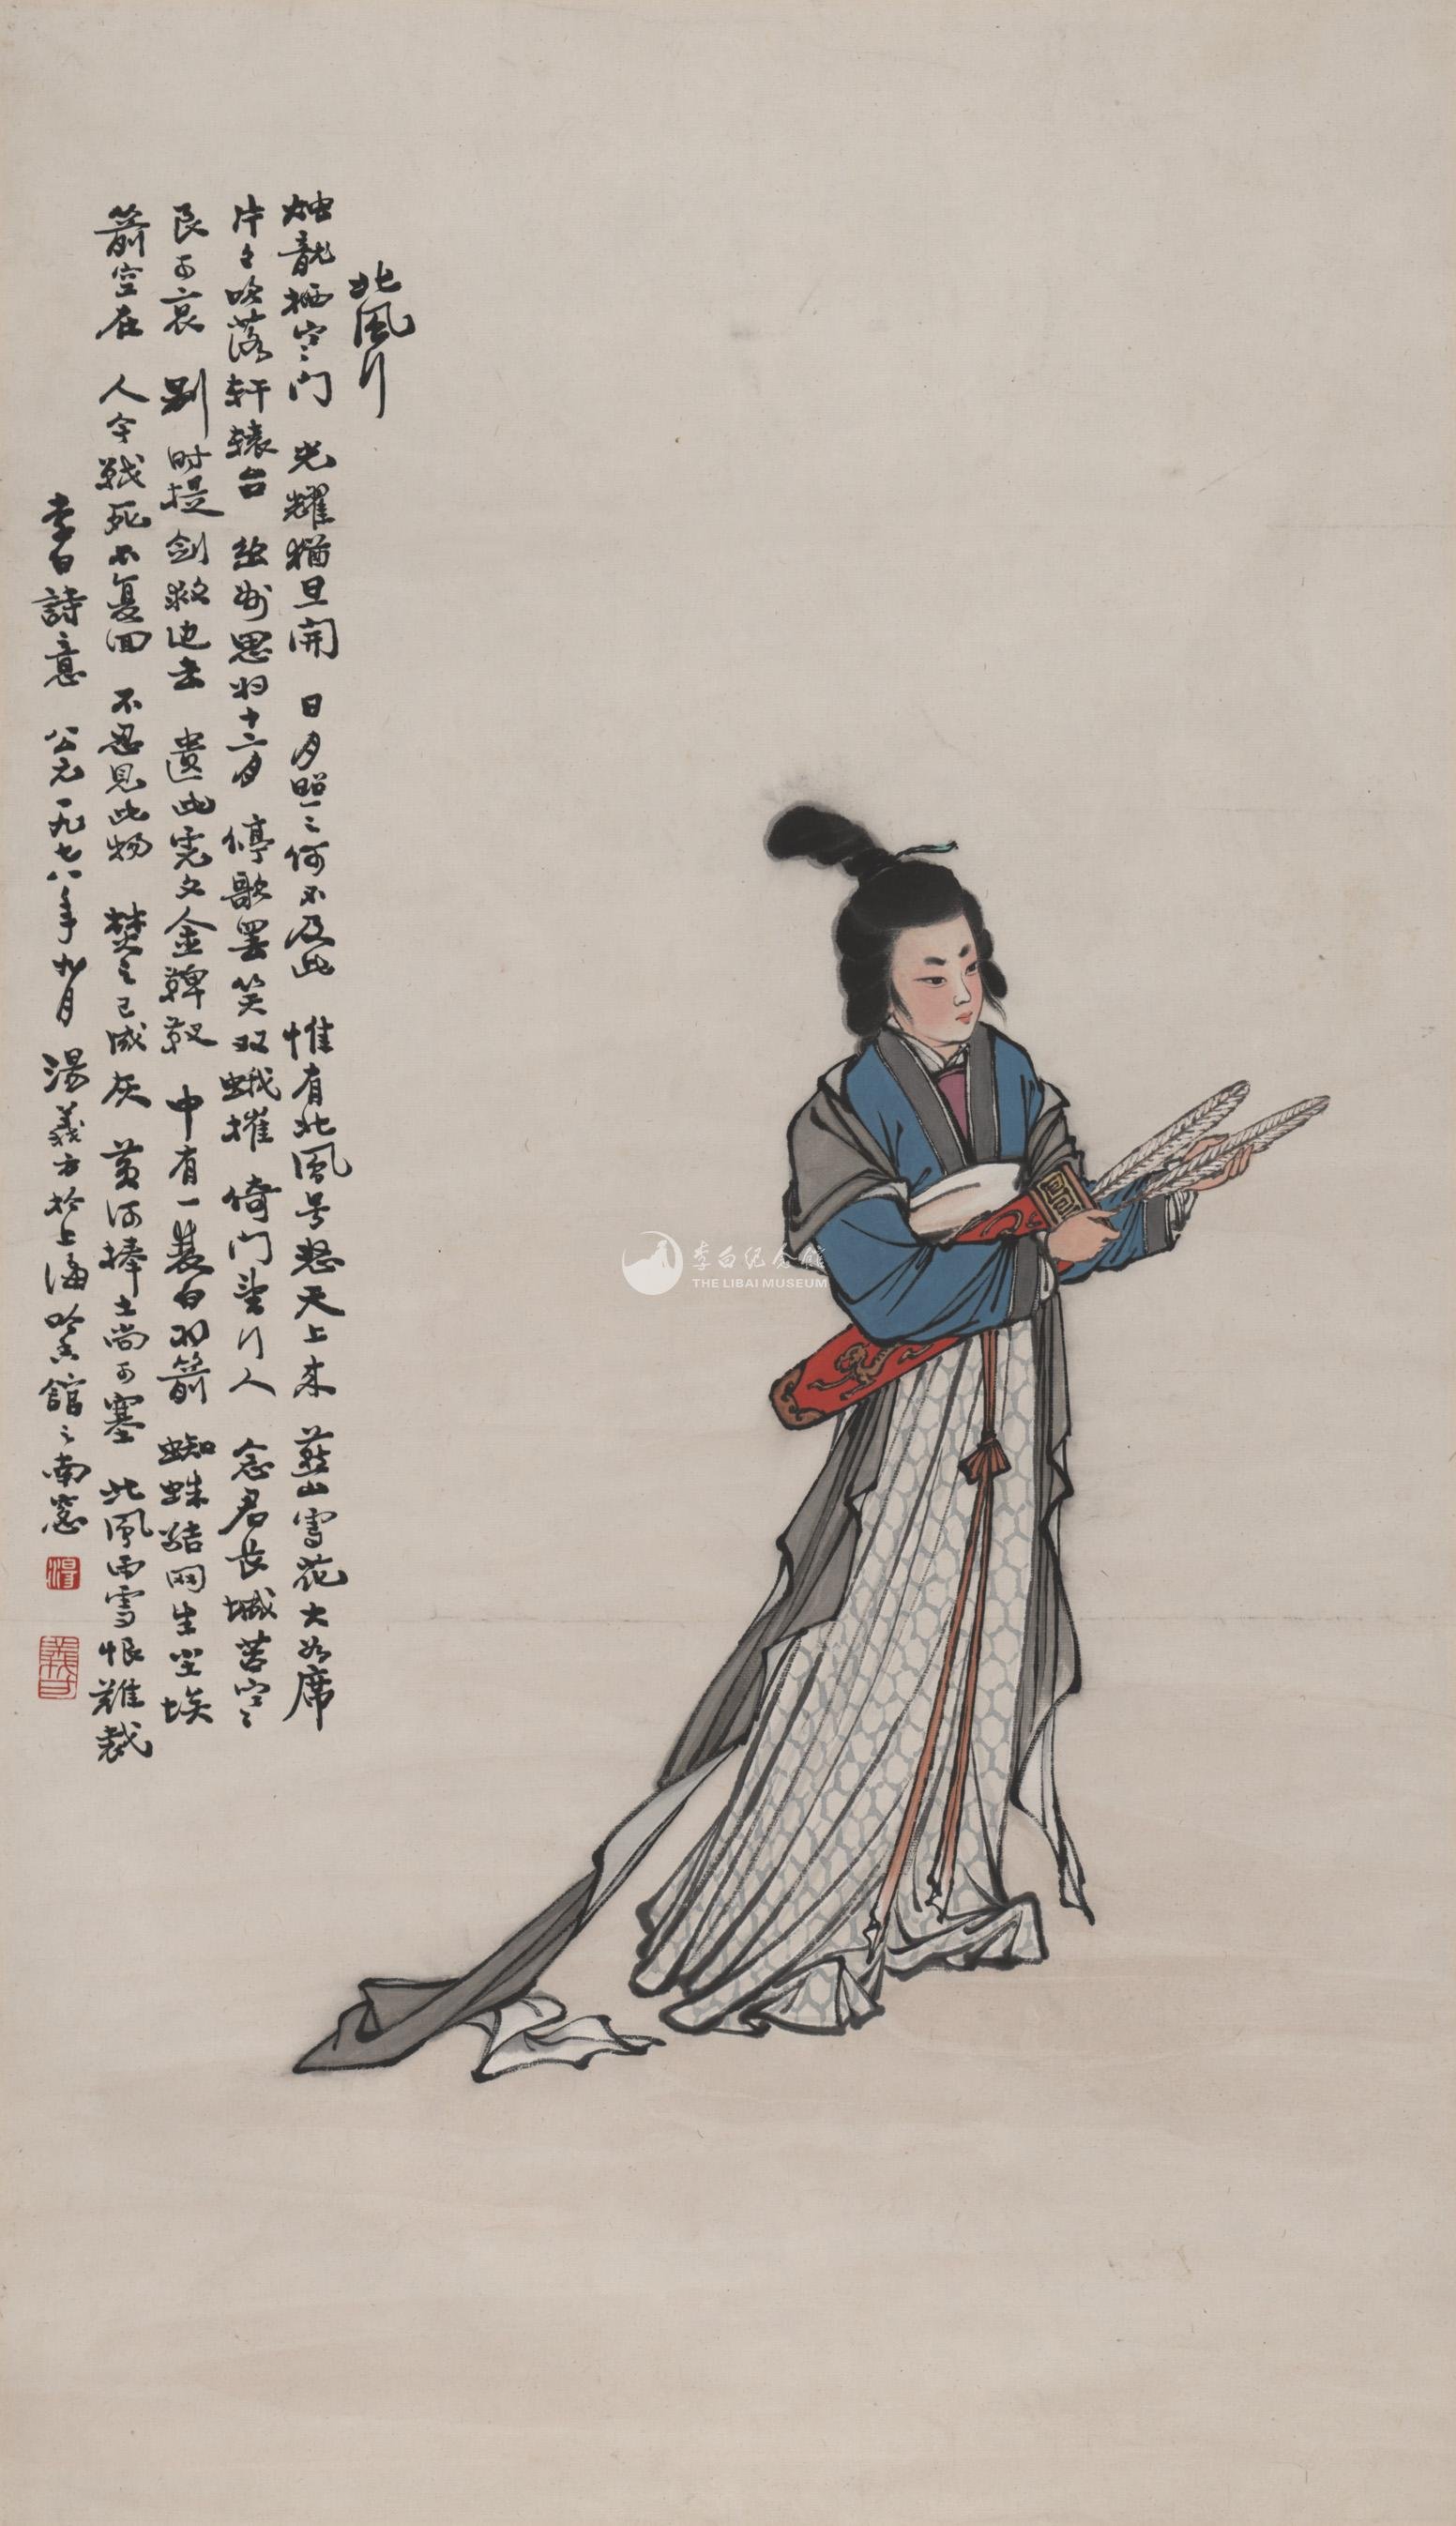 北风行
烛龍栖寒门 光耀犹旦開 日月照之何不及此 惟有北風号怒天上来 燕山雪花大如席
片片吹落轩辕台 幽州思妇十二月 停歌罢笑双蛾摧 倚门望行人 念君长城苦寒
良可哀 别时提剑救边去 遗此虎文金鞞靫 中有一䨇白羽箭 蜘蛛结网生尘埃
箭空在 人今戰死不复回 不忍見此物 焚之已成灰 黄河捧土尚可塞 北風雨雪恨難裁
李白詩意 公元一九七八年九月 湯義方於上海吟香館之南窓
湯
義方
李白纪念館
THE LIBAI MUSEUM